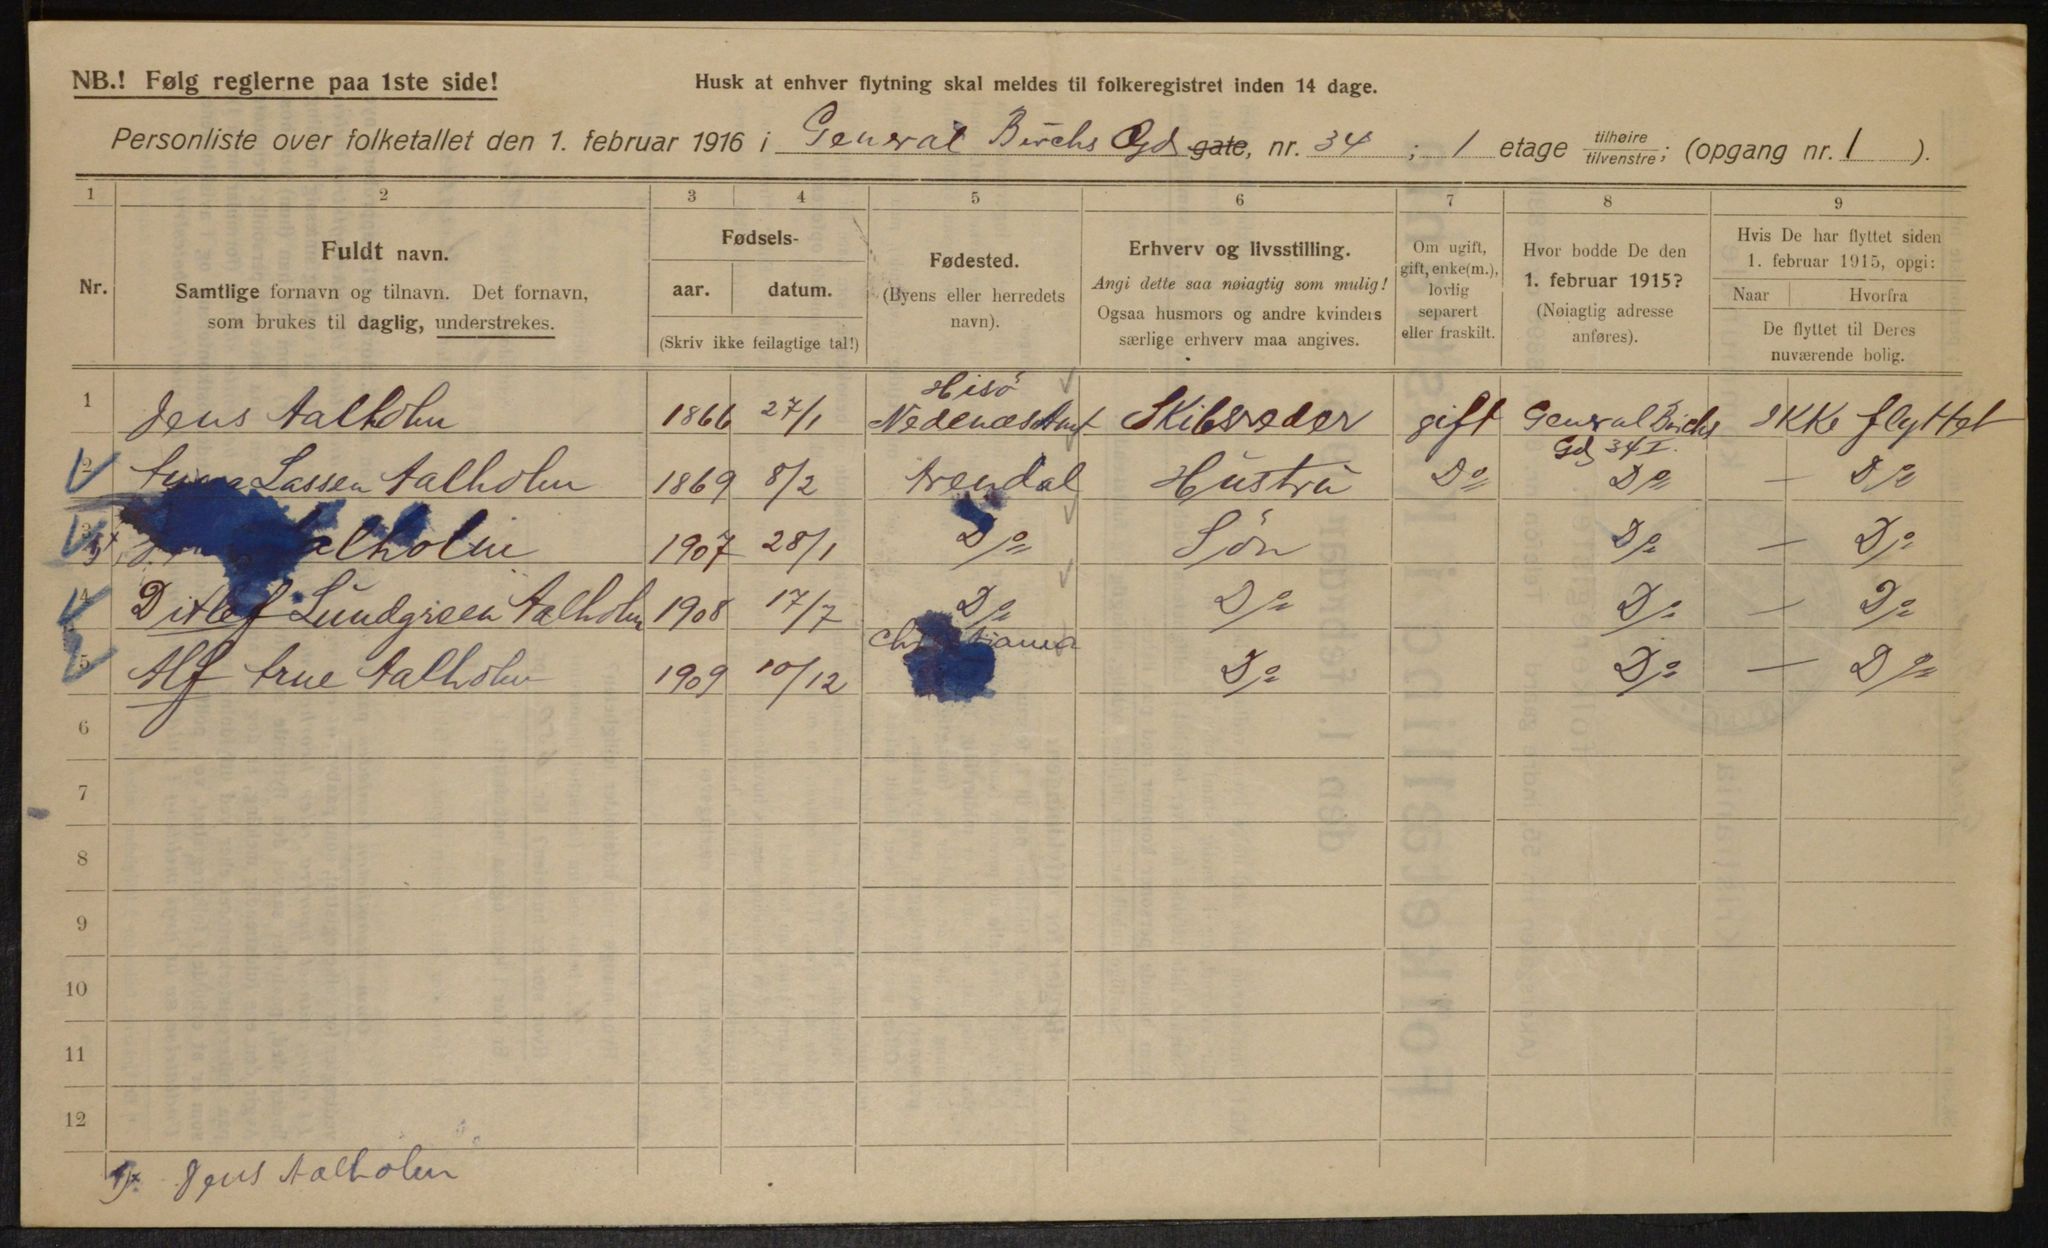 NB.! Følg reglerne paa 1ste side!
Husk at enhver flytning skal meldes til folkeregistret inden 14 dage.
Personliste over folketallet den 1. februar 1916 i General Birchs Gd gate, nr. 34; 1 etage tilhøire/tilvenstre; (opgang nr. 1).
1 2 3 4 5 6 7 8 9
Nr.
Fuldt navn.
Samtlige fornavn og tilnavn. Det fornavn,
som brukes til daglig, understrekes.
Fødsels-
aar. datum.
(Skriv ikke feilagtige tal!)
Fødested.
(Byens eller herredets
navn).
Erhverv og livsstilling.
Angi dette saa nøiagtig som mulig!
Ogsaa husmors og andre kvinders
særlige erhverv maa angives.
Om ugift,
gift, enke(m.),
lovlig
separert
eller fraskilt.
Hvor bodde De den
1. februar 1915?
(Nøiagtig adresse
anføres).
Hvis De har flyttet siden
1. februar 1915, opgi:
Naar Hvorfra
De flyttet til Deres
nuværende bolig.
1 Jens Aalholm 1866 27/1 Hisö Nedenæs Amt Skibsreder gift General Birchs Gd 34 I. Ikke flyttet
2 Lassen Aalholm 1869 8/2 Arendal Hustru Do Do — Do
3 Aalholm 1907 28/1 Do Sön Do — Do
4 Ditlef Lundgreen Aalholm 1908 17/7 Do Do Do — Do
5 Alf Arne Aalholm 1909 10/12 Christiania Do Do — Do
6
7
8
9
10
11
12
Jens Aalholm